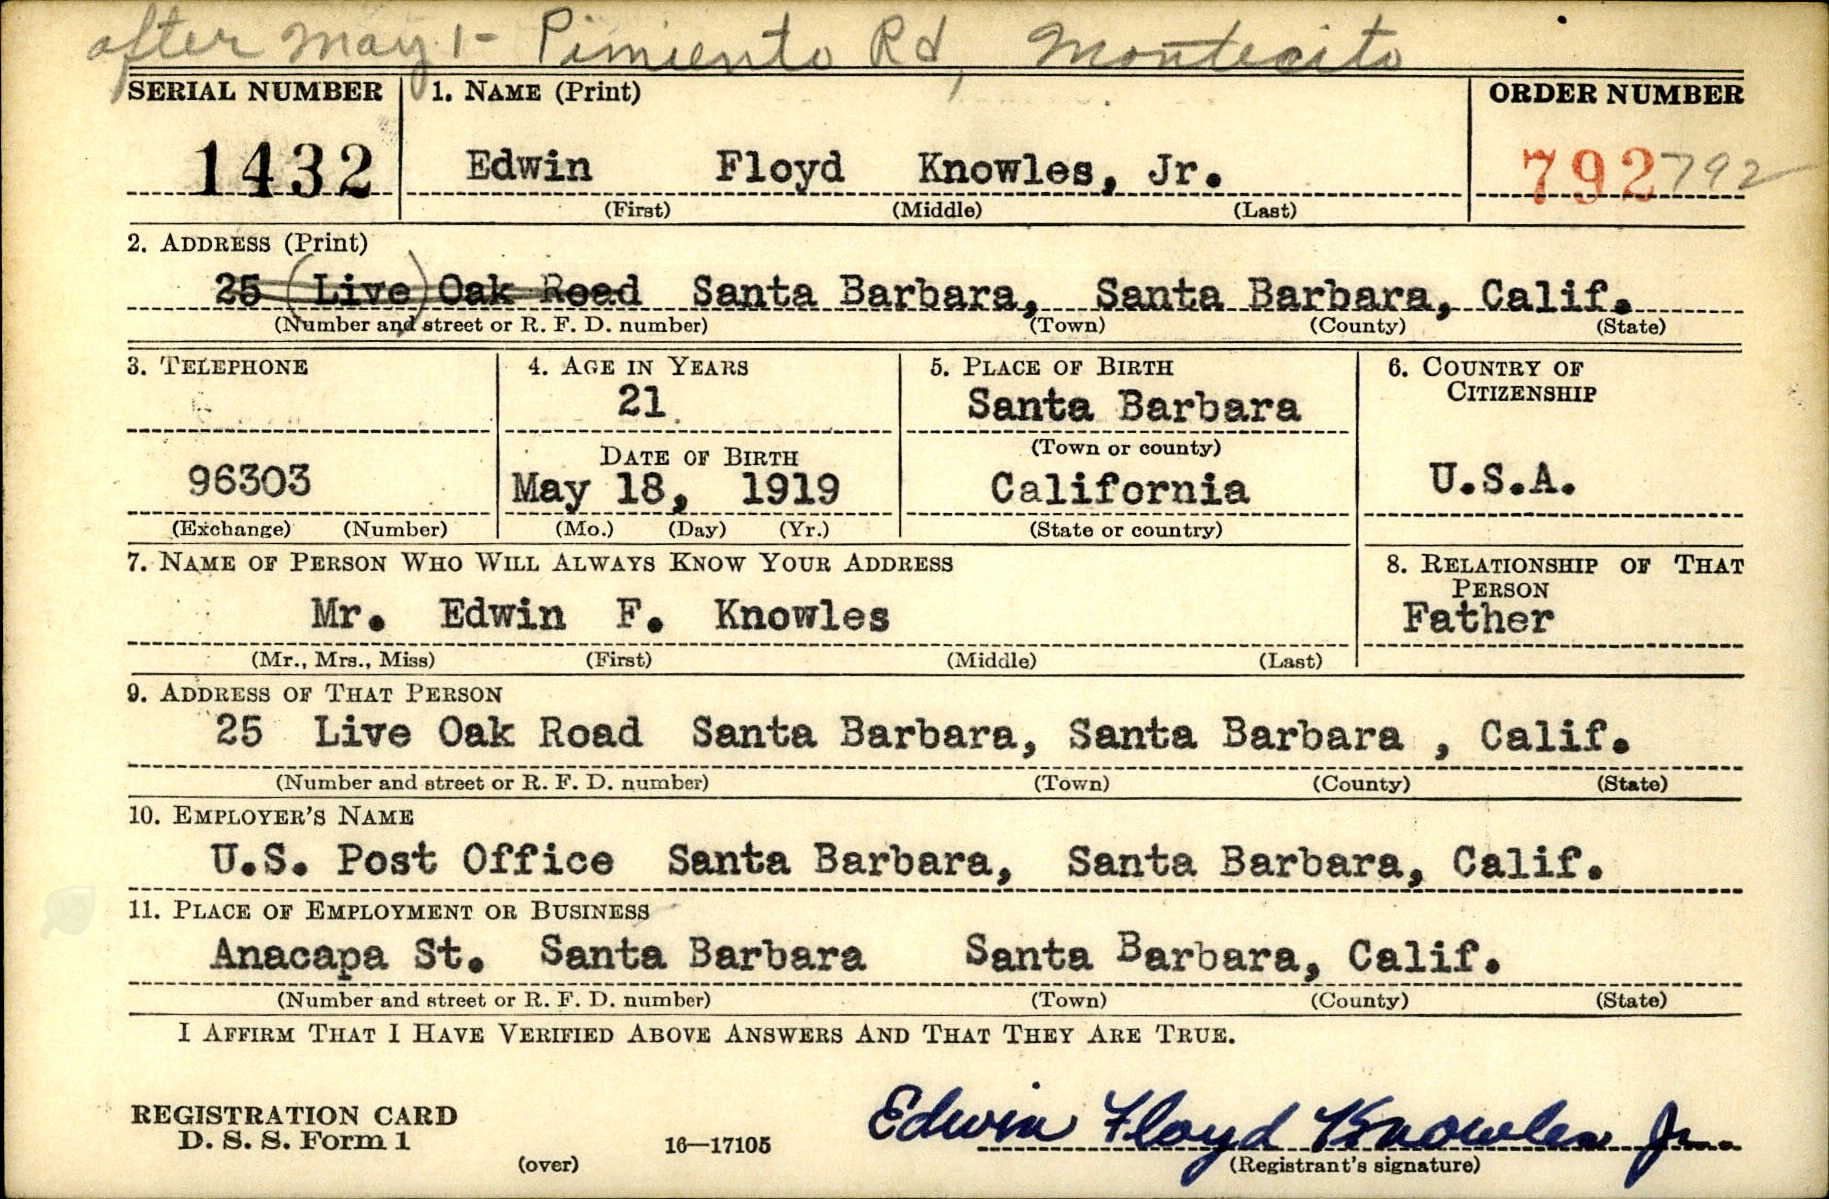 after May 1- Pimiento Rd, Montecito
SERIAL NUMBER 1. NAME (Print) ORDER NUMBER
1432 Edwin Floyd Knowles, Jr. 792 792
(First) (Middle) (Last)
2. ADDRESS (Print)
25 (Live) Oak Road Santa Barbara, Santa Barbara, Calif.
(Number and street or R. F. D. number) (Town) (County) (State)
3. TELEPHONE 4. AGE IN YEARS 5. PLACE OF BIRTH 6. COUNTRY OF
CITIZENSHIP
21 Santa Barbara
DATE OF BIRTH (Town or county)
96303 May 18, 1919 California U.S.A.
(Exchange) (Number) (Mo.) (Day) (Yr.) (State or country)
7. NAME OF PERSON WHO WILL ALWAYS KNOW YOUR ADDRESS 8. RELATIONSHIP OF THAT
PERSON
Mr. Edwin F. Knowles Father
(Mr., Mrs., Miss) (First) (Middle) (Last)
9. ADDRESS OF THAT PERSON
25 Live Oak Road Santa Barbara, Santa Barbara , Calif.
(Number and street or R. F. D. number) (Town) (County) (State)
10. EMPLOYER'S NAME
U.S. Post Office Santa Barbara, Santa Barbara, Calif.
11. PLACE OF EMPLOYMENT OR BUSINESS
Anacapa St. Santa Barbara Santa Barbara, Calif.
(Number and street or R. F. D. number) (Town) (County) (State)
I AFFIRM THAT I HAVE VERIFIED ABOVE ANSWERS AND THAT THEY ARE TRUE.
REGISTRATION CARD
D. S. S. Form 1 16—17105 Edwin Floyd Knowles Jr.
(over) (Registrant's signature)